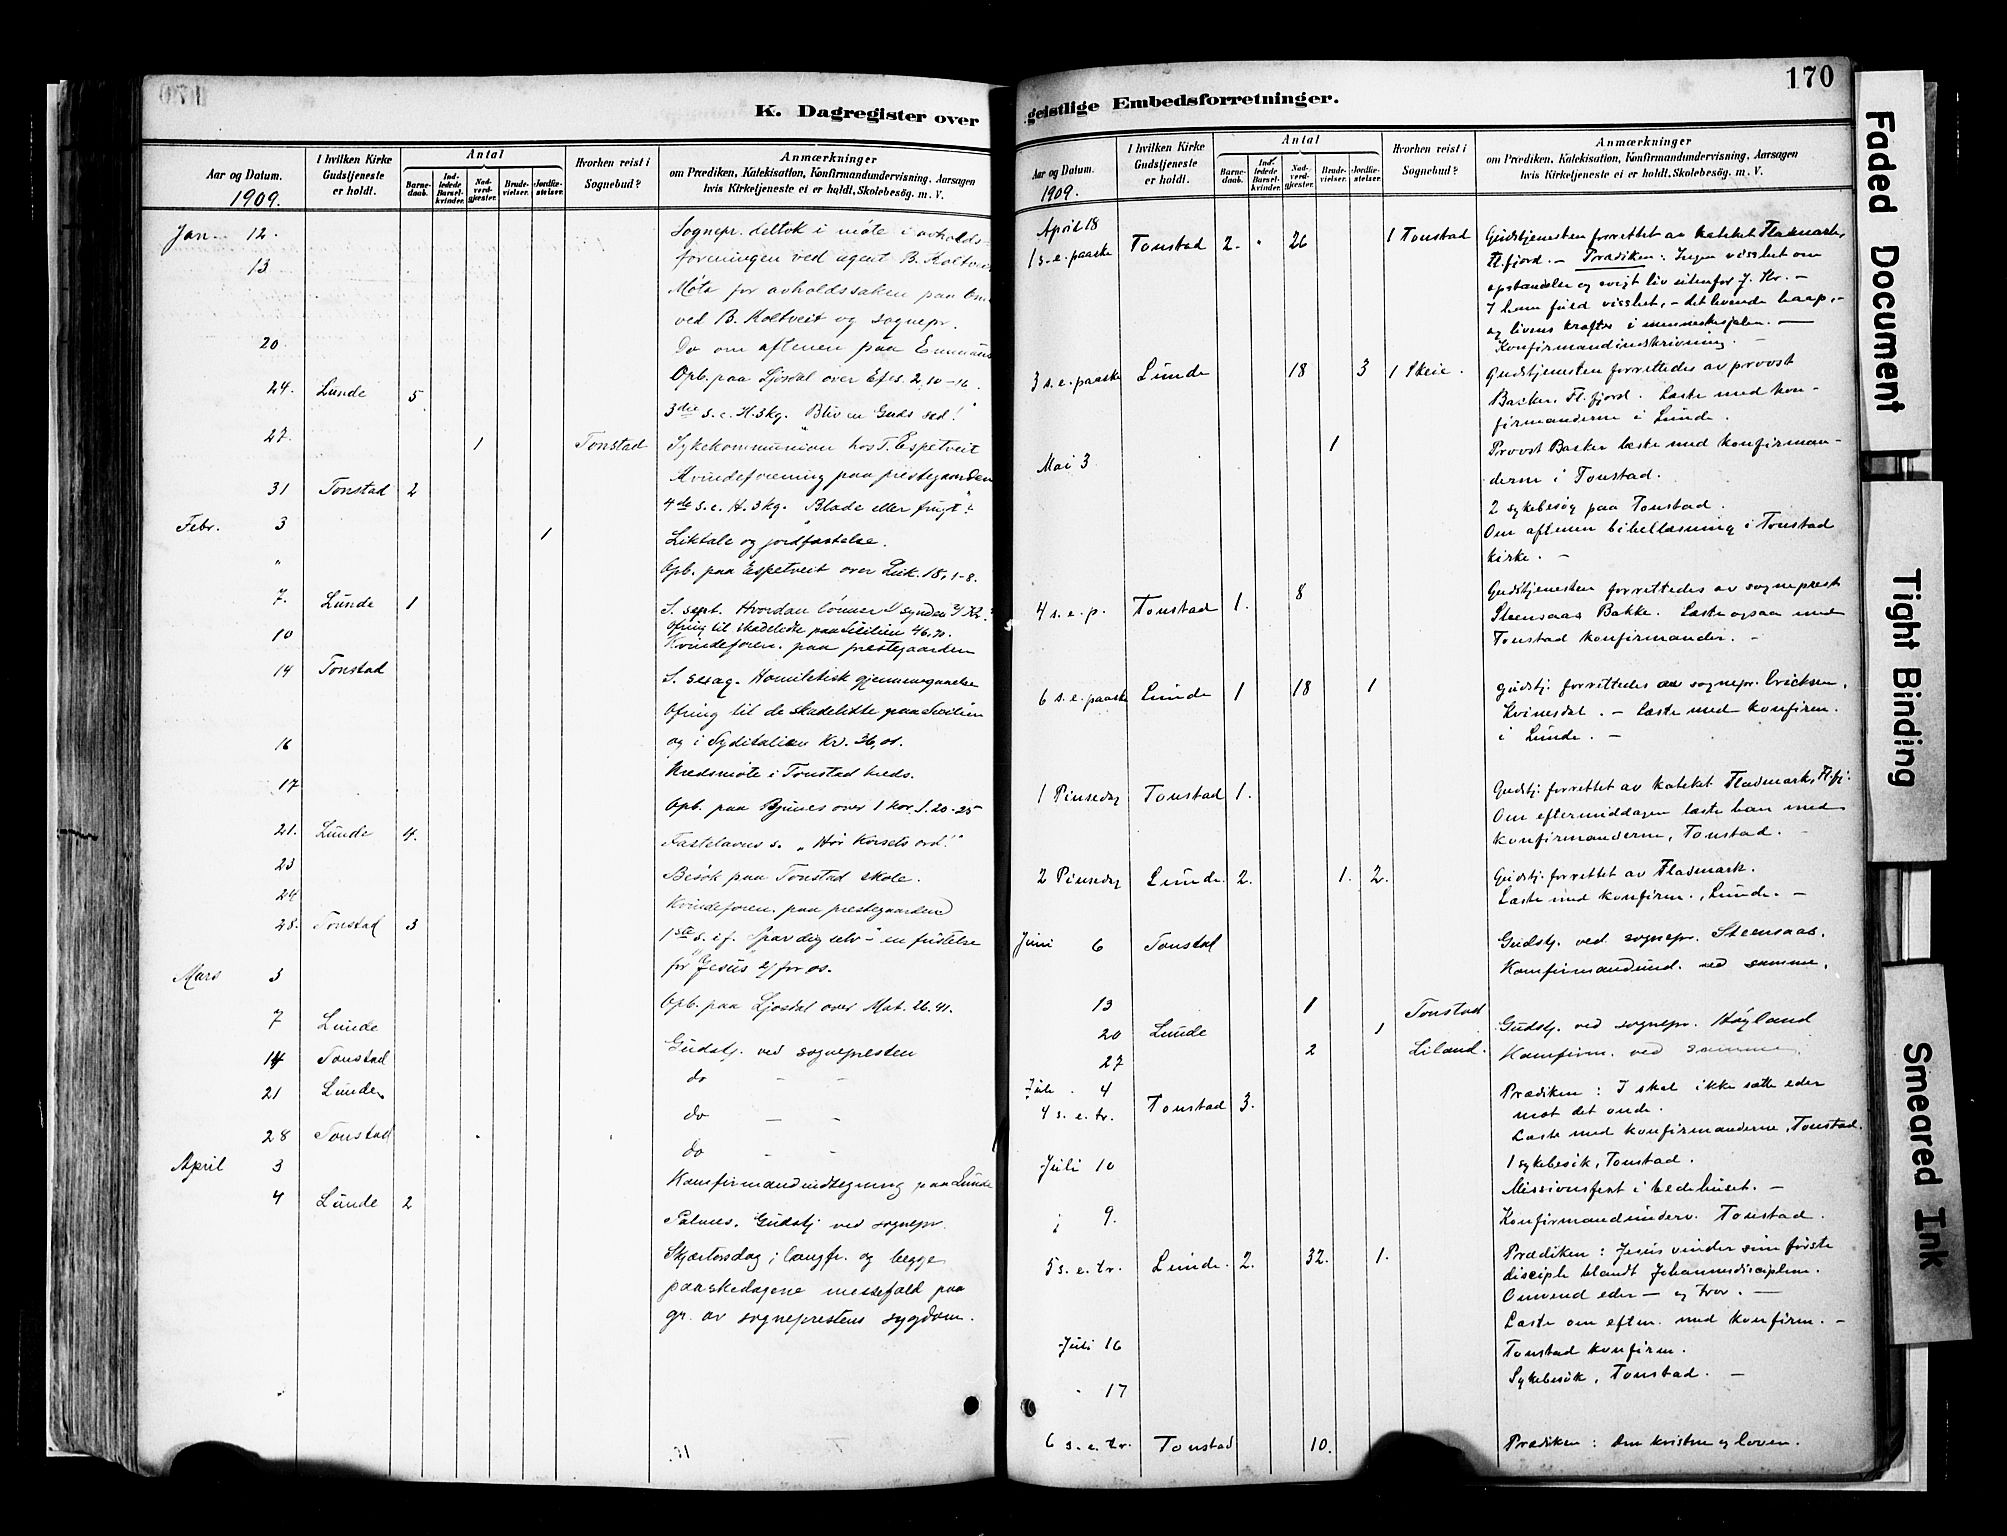 K. Dagregister over
Aar og Datum.
1909.
I hvilken Kirke
Gudstjeneste
er holdt.
Antal
Barne-
daab.
Ind-
ledede
Barsel-
kvinder.
Nad-
verd-
gjester.
Brude-
vielser.
Jordfæ-
stelser.
Hvorhen reist i
Sognebud?
Anmærkninger
om Prædiken, Katekisation, Konfirmandundervisning, Aarsagen
hvis Kirketjeneste ei er holdt, Skolebesøg. m. V.
Jan. 12. Sognepr. deltok i møte i avholds-
13 foreningen ved agent B. Koltveit
Møte for avholdssaken paa
ved B. Koltveit og sognepr.
20. Do om aftenen paa Emmaus
Opb. paa Ljosdal over Efes. 2, 10-16.
24. Lunde 5 3die s. e. H. 3kg. "Bliv en Guds sed!"
27. 1 Tonstad Sykekommunion hos T. Espetveit
Kvindeforening paa prestegaarden
31 Tonstad 2 4de s. e. H. 3kg. "Blade eller frugt"?
Febr. 3 1 Liktale og jordfæstelse.
" Opb. paa Espetveit over Luk. 18, 1-8.
7. Lunde 1 S. sept. Hvordan lønner synden
Ofring til skadelidte paa Sicilien 46,70.
10 Kvindeforen. paa prestegaarden
14 Tonstad S. sexag. Homiletisk gjennemgaaelse
Ofring til de skadelidte paa Sicilien
og i Syditalien Kr. 36,01.
16 Kredsmøte i Tonstad kreds.
17 Opb. paa Bjunes over 1 Kor. 1. 20-25
21. Lunde 4. Fastelavns s. "Hør Korsets ord!"
23 Besøk paa Tonstad skole.
24 Kvindeforen. paa prestegaarden
28. Tonstad 3 1ste s. i f. "Spar dig selv" - en fristelse
for Jesus og for os.
Mars 3 Opb. paa Ljosdal over Mat. 26.41.
7 Lunde Gudstj. ved sognepresten
14 Tonstad do - -
21 Lunde do - -
28 Tonstad do - -
April 3 Konfirmandindtegning paa Lunde
4 Lunde 2 Palmes. Gudstj ved sognepr.
Skjærtorsdag, langfr. og begge
paaskedagene messefald paa
gr. av sogneprestens sygdom.
170
geistlige Embedsforretninger.
Aar og Datum.
1909.
I hvilken Kirke
Gudstjeneste
er holdt.
Antal
Barne-
daab.
Ind-
ledede
Barsel-
kvinder.
Nad-
verd-
gjester.
Brude-
vielser.
Jordfæ-
stelser.
Hvorhen reist i
Sognebud?
Anmærkninger
om Prædiken, Katekisation, Konfirmandundervisning, Aarsagen
hvis Kirketjeneste ei er holdt, Skolebesøg. m. V.
April 18
1 s. e. paaske Tonstad 2. " 26 1 Tonstad Gudstjenesten forrettet av kateket Fladmark,
Fl.fjord. - Prædiken: Ingen visshet om
opstandelse og evigt liv utenfor J. Kr. -
I ham fuld visshet, - det levende haap, -
og livens kræfter i menneskesjelen. -
Konfirmandindskrivning. -
3 s. e. paaske Lunde 18 3 1 Skeie. Gudstjenesten forrettedes av provst
Barker, Fl.fjord. Læste med kon-
firmanderne i Lunde.
Mai 3 1 Provst Barker læste med konfirman-
derne i Tonstad.
2 sykebesøg paa Tonstad.
Om aftenen bibellæsning i Tonstad
kirke. -
4 s. e. p. Tonstad 1. 8 Gudstjenesten forrettedes av sogneprest
Steensaas Bakke. Læste ogsaa med
Tonstad konfirmander. -
6 s. e. paaske Lunde 1 18 1 Gudstj. forrettedes av sognepr. Ericksen,
Kvinesdal. - Læste med konfirm.
i Lunde. -
1 Pinsedag Tonstad 1. Gudstj. forrettet av kateket Fladmark, Fl.fj.
Om eftermiddagen læste han med
konfirmanderne, Tonstad. -
2 Pinsedag Lunde. 2. 1. 2. Gudstj. forrettet av Fladmark.
Læste med konfirm., Lunde. -
Juni 6 Tonstad Gudstj. ved sognepr. Steensaas.
Konfirmandund. ved samme.
13 1 Tonstad
20 Lunde 1 Gudstj. ved sognepr. Høyland
27 2 Liland. Konfirm. ved samme.
Juli 4
4 s. e. tr. Tonstad 3. Prædiken: I skal ikke sætte eder
mot det onde.
Læste med konfirmanderne, Tonstad.
Juli 10 1 sykebesøk, Tonstad.
Missionsfest i bedehuset. -
9. Konfirmandunderv. Tonstad.
5 s. e. tr. Lunde. 2. 32. 1. Prædiken: Jesus vinder sine første
disciple blandt Johannesdisciplene.
Omvend eder - og tror. -
Læste om efterm. med konfirm. -
Juli 16 Tonstad konfirm.
" 17 Sykebesøk, Tonstad. -
6 s. e. tr. Tonstad 10. Prædiken: Den kristne og loven.
Faded Document
Tight Binding
Smeared Ink